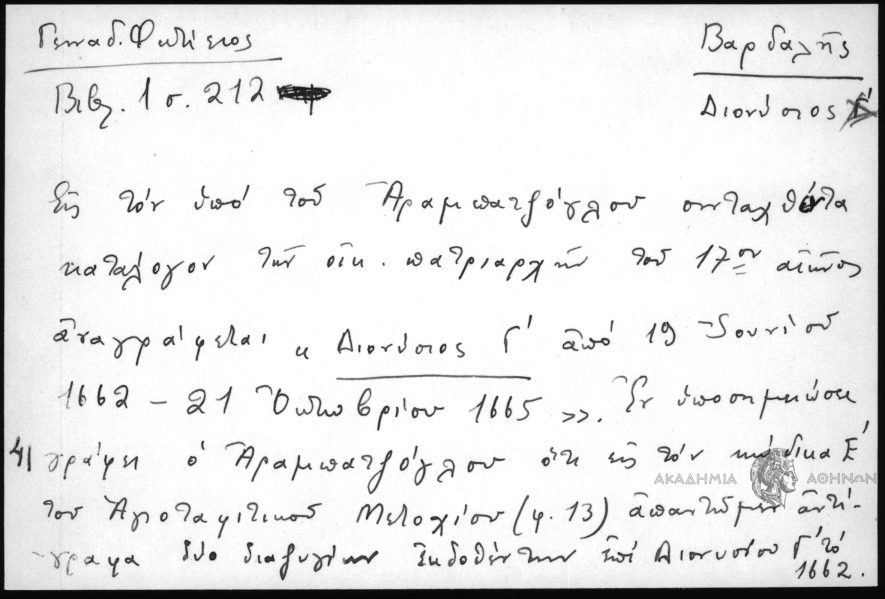 Γενναδ. Φωτίειος
Βαρδαλῆς
Βιβλ. 1 σ. 212
Διονύσιος Γ'
Εἰς τόν ὑπό τοῦ Ἀραμπατζόγλου συνταχθέντα
κατάλογον τῶν οἰκ. πατριαρχῶν τοῦ 17ου αἰῶνος
ἀναγράφεται « Διονύσιος Γ' ἀπό 19 Ἰουνίου
1662 - 21 Ὀκτωβρίου 1665 ». Ἐν ὑποσημειώσει
41 γράφει ὁ Ἀραμπατζόγλου ὅτι εἰς τόν κώδικα Ε'
ΑΚΑΔΗΜΙΑ ΑΘΗΝΩΝ
τοῦ Ἁγιοταφιτικοῦ Μετοχίου (φ. 13) ἀπαντῶμεν ἀντί-
-γραφα δύο διαζυγίων ἐκδοθέντων ἐπί Διονυσίου Γ' τό
1662.